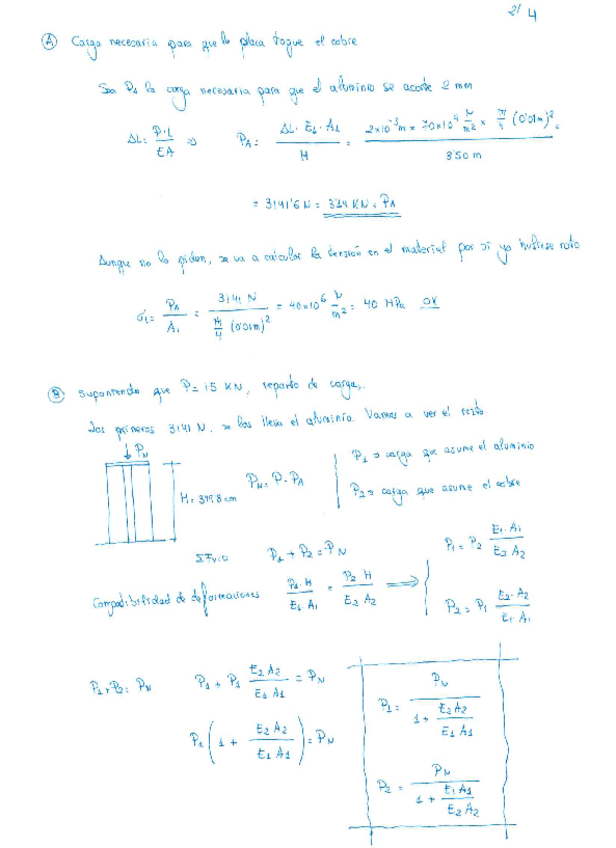 2/4
(A) Carga necesaria para que la placa toque el cobre
Sea PA la carga necesaria para que el aluminio se acorte 2 mm
ΔL = P·L / EA ⇒ PA = ΔL · E1 · A1 / H = 2×10^-3 m × 70×10^9 N/m² × π/4 (0'01m)² / 3'50 m =
= 3141'6 N = 3'14 KN = PA
Aunque no lo piden, se va a calcular la tensión en el material por si ya hubiese roto
σ1 = PA / A1 = 3141 N / π/4 (0'01m)² = 40×10^6 N/m² = 40 MPa OK
(B) Suponiendo que P = 15 KN, reparto de carga,
Los primeros 3141 N, se los lleva el aluminio. Vamos a ver el resto
PN
P1 ⇒ carga que asume el aluminio
PN = P - PA
H = 349.8 cm
P2 ⇒ carga que asume el cobre
ΣFv=0 P1 + P2 = PN
P1 = P2 E1·A1 / E2 A2
Compatibilidad de deformaciones P1·H / E1·A1 = P2 H / E2 A2 ⇒
P2 = P1 E2·A2 / E1·A1
P1+P2 = PN P1 + P1 E2 A2 / E1 A1 = PN
P1 = PN / 1 + E2 A2 / E1 A1
P1 (1 + E2 A2 / E1 A1) = PN
P2 = PN / 1 + E1 A1 / E2 A2